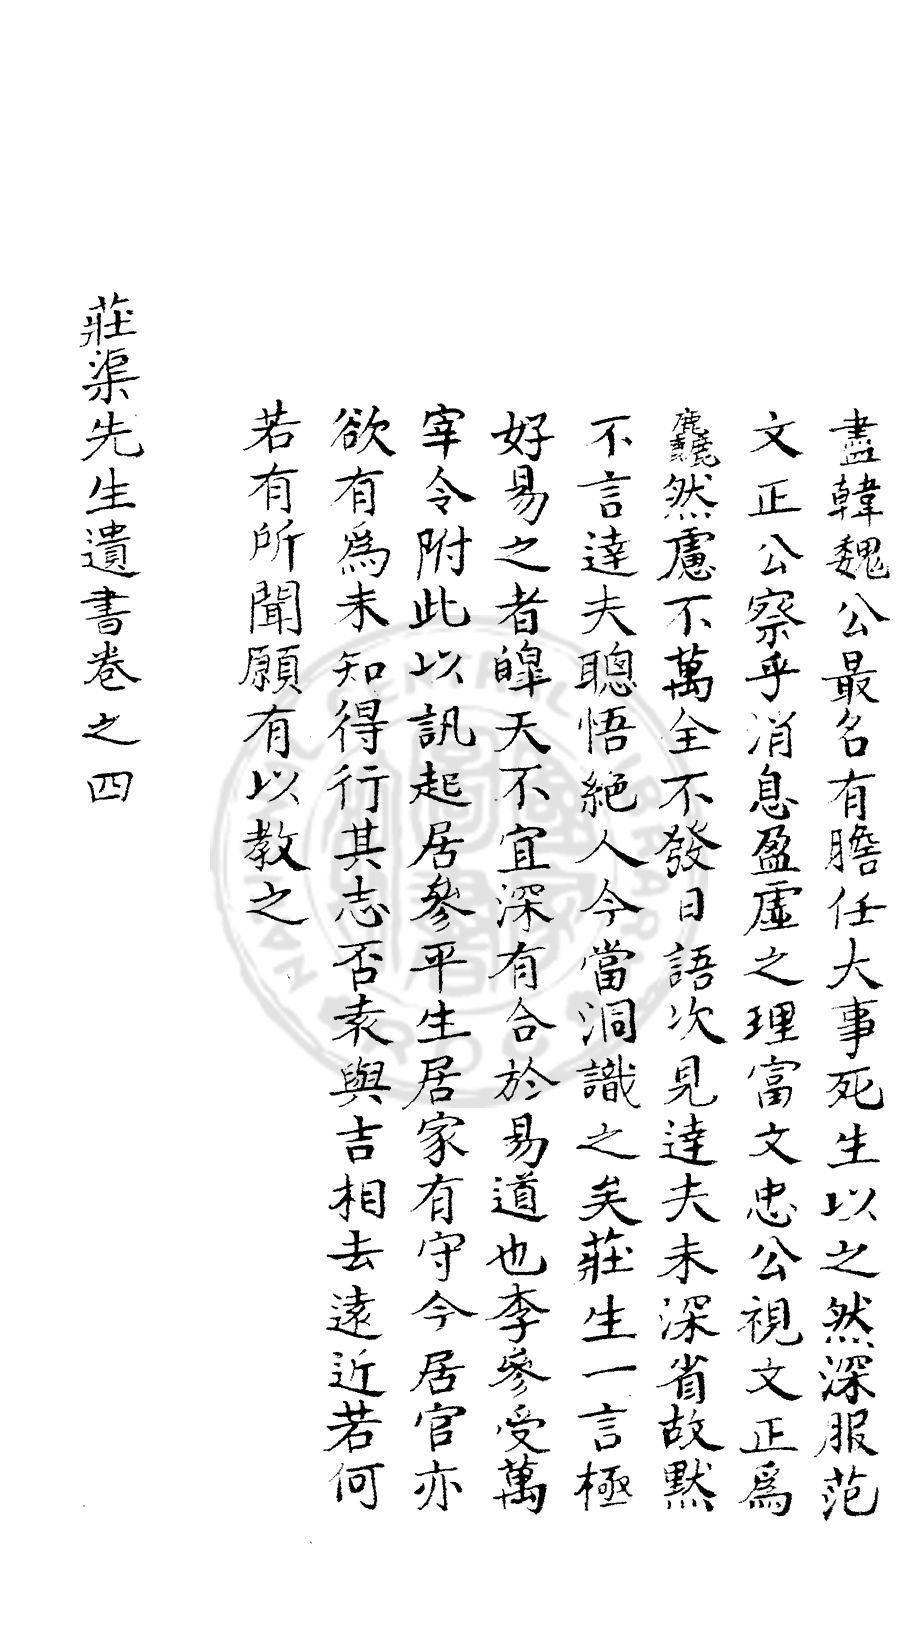 盡韓魏公最名有膽任大事死生以之然深服范
文正公察乎消息盈虛之理富文忠公視文正爲
麤然慮不萬全不發日語次見達夫未深省故默
不言達夫聰悟絕人今當洞識之矣莊生一言極
好易之者皥天不宜深有合於易道也李參受萬
宰令附此以訊起居參平生居家有守今居官亦
欲有爲未知得行其志否袁與吉相去遠近若何
若有所聞願有以教之
莊渠先生遺書卷之四